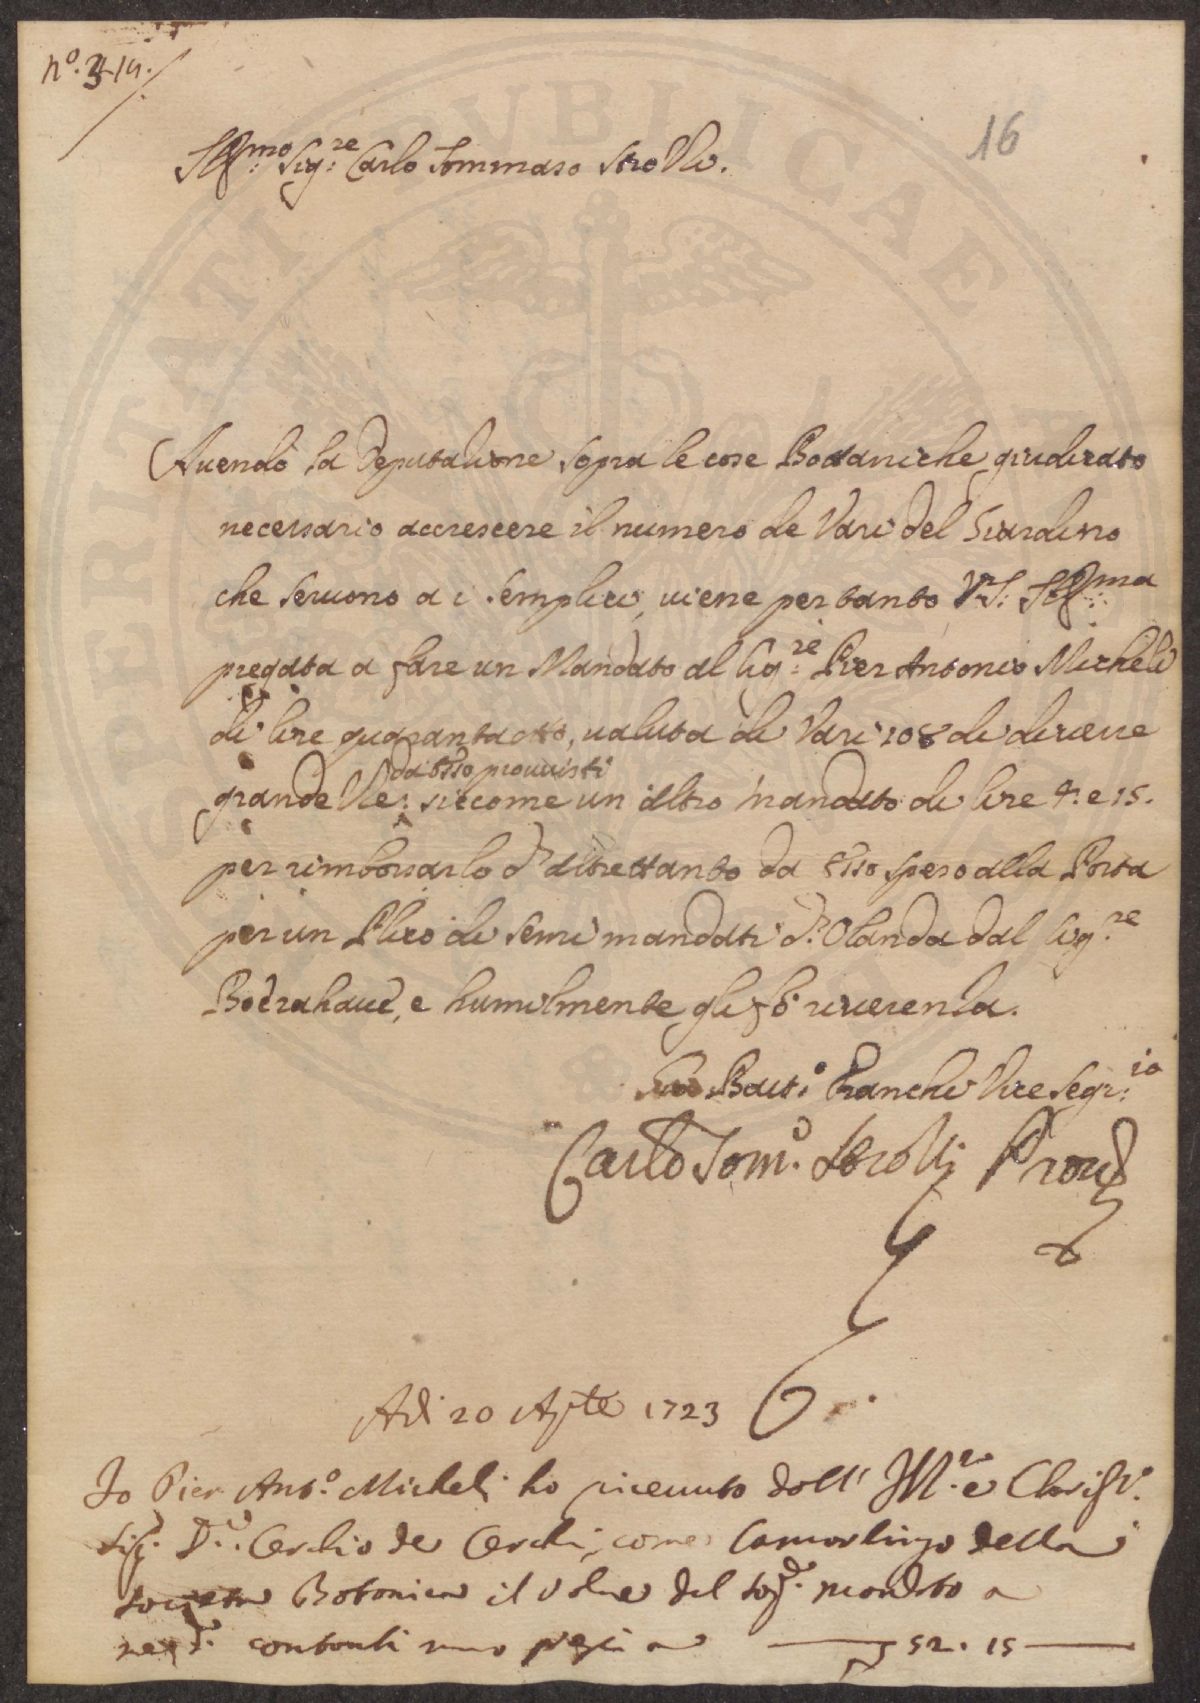 n.º 314.
16
Ill:mo Sig:re Carlo Tommaso Strozzi.
Auendo la Deputazione sopra le cose Bottaniche giudicato
necessario accrescere il numero de Vasi del Giardino
che seruono a i semplici, uiene pertanto V.S. Ill:ma
pregata a fare un Mandato al Sig:re Pier Antonio Micheli
di lire quarantaotto, ualuta di Vasi 108 di diuerse
da esso prouuisti
grandezze: siccome un altro mandato di lire 4. e 15.
per rimborsarlo d'altrettanto da esso speso alla Posta
per un Plico di semi mandati d'Olanda dal Sig:re
Boerahaue, e humilmente gli fò riuerenza.
Gio Batt.ª Franchi Vice Segr:io
Carlo Tom.º Strozzi Prou.
Adi 20 Aple 1723
Io Pier Ant.º Micheli ho riceuuto dall' Ill.re e Clariss.º
Sig. D.: Cerchio de Cerchi, come Camarlingo della
Società Botanica il ualore del sop.d mandato a
me contanti
52. 15
SPERITATI PVBLICAE